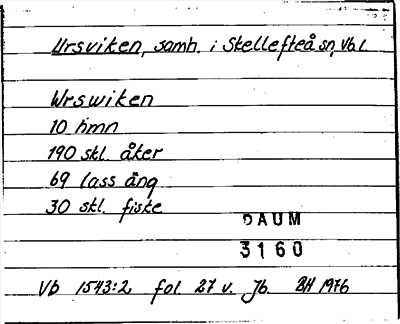 Ursviken, samh. i Skellefteå sn, Vb l.
Wrswiken
10 hmn
190 skl. åker
69 lass äng
30 skl. fiske
DAUM
3160
Vb 1543:2 fol 27 v. Jb. BH 1976